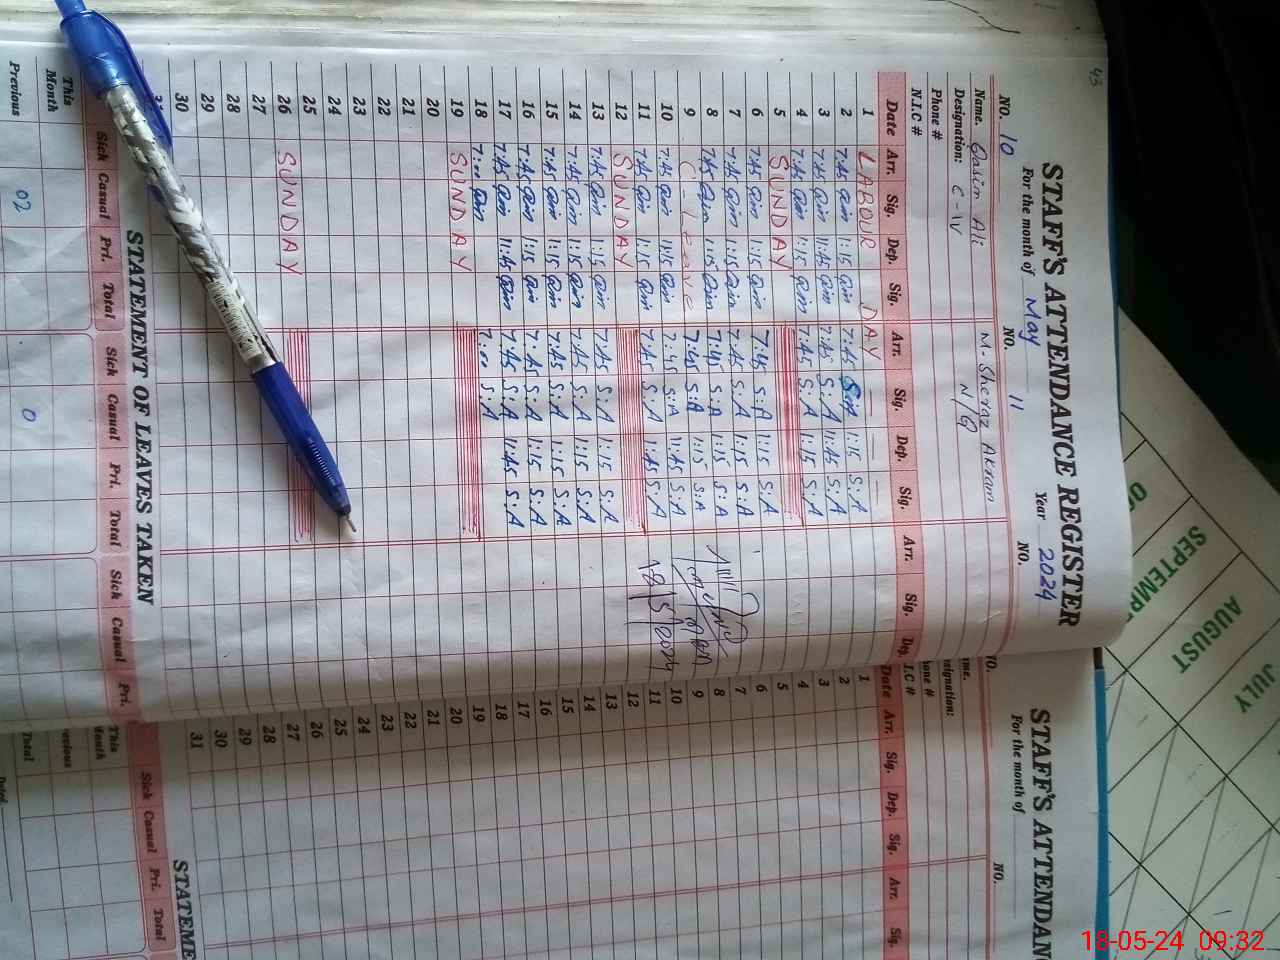 43
STAFF'S ATTENDANCE REGISTER
For the month of May Year 2024
NO. 10 NO. 11 NO.
Name. Qasim Ali M. Sheraz Akram
Designation: C-IV N/Q
Phone #
N.I.C #
Date Arr. Sig. Dep. Sig. Arr. Sig. Dep. Sig. Arr. Sig. Dep.
1 LABOUR DAY — — —
2 7:45 Qim 1:15 Qim 7:45 S.A 1:15 S.A
3 7:45 Qim 11:45 Qim 7:45 S.A 11:45 S.A
4 7:45 Qim 1:15 Qim 7:45 S.A 1:15 S.A
5 SUNDAY
6 7:45 Qim 1:15 Qim 7:45 S:A 1:15 S.A
7 7:45 Qim 1:15 Qim 7:45 S.A 1:15 S.A
8 7:45 Qim 1:15 Qim 7:45 S:A 1:15 S:A
9 C-Leave 7:45 S:A 1:15 S:A
10 7:45 Qim 11:15 Qim 7:45 S:A 11:45 S:A
11 7:45 Qim 1:15 Qim 7:45 S.A 1:45 S.A
12 SUNDAY
13 7:45 Qim 1:15 Qim 7:45 S.A 1:15 S.A
14 7:45 Qim 1:15 Qim 7:45 S.A 1:15 S.A
15 7:45 Qim 1:15 Qim 7:45 S.A 1:15 S.A
16 7:45 Qim 1:15 Qim 7:45 S.A 1:15 S:A
17 7:45 Qim 11:45 Qim 7:45 S.A 11:45 S:A
18 7:00 Qim 7:00 S.A
19 SUNDAY
20
21
22
23
24
25
26 SUNDAY
27
28
29
30
31
18/5/2024
STATEMENT OF LEAVES TAKEN
Sick Casual Pri. Total Sick Casual Pri. Total Sick Casual Pri.
This Month
Previous 02 0
STAFF'S ATTENDAN
For the month of
NO. NO.
me.
esignation:
hone #
I.C #
Date Arr. Sig. Dep. Sig. Arr. Sig.
1
2
3
4
5
6
7
8
9
10
11
12
13
14
15
16
17
18
19
20
21
22
23
24
25
26
27
28
29
30
31
STATEME
Sick Casual Pri. Total
This
Month
evious
Total
JULY
AUGUST
SEPTEMB
OC
18-05-24 09:32